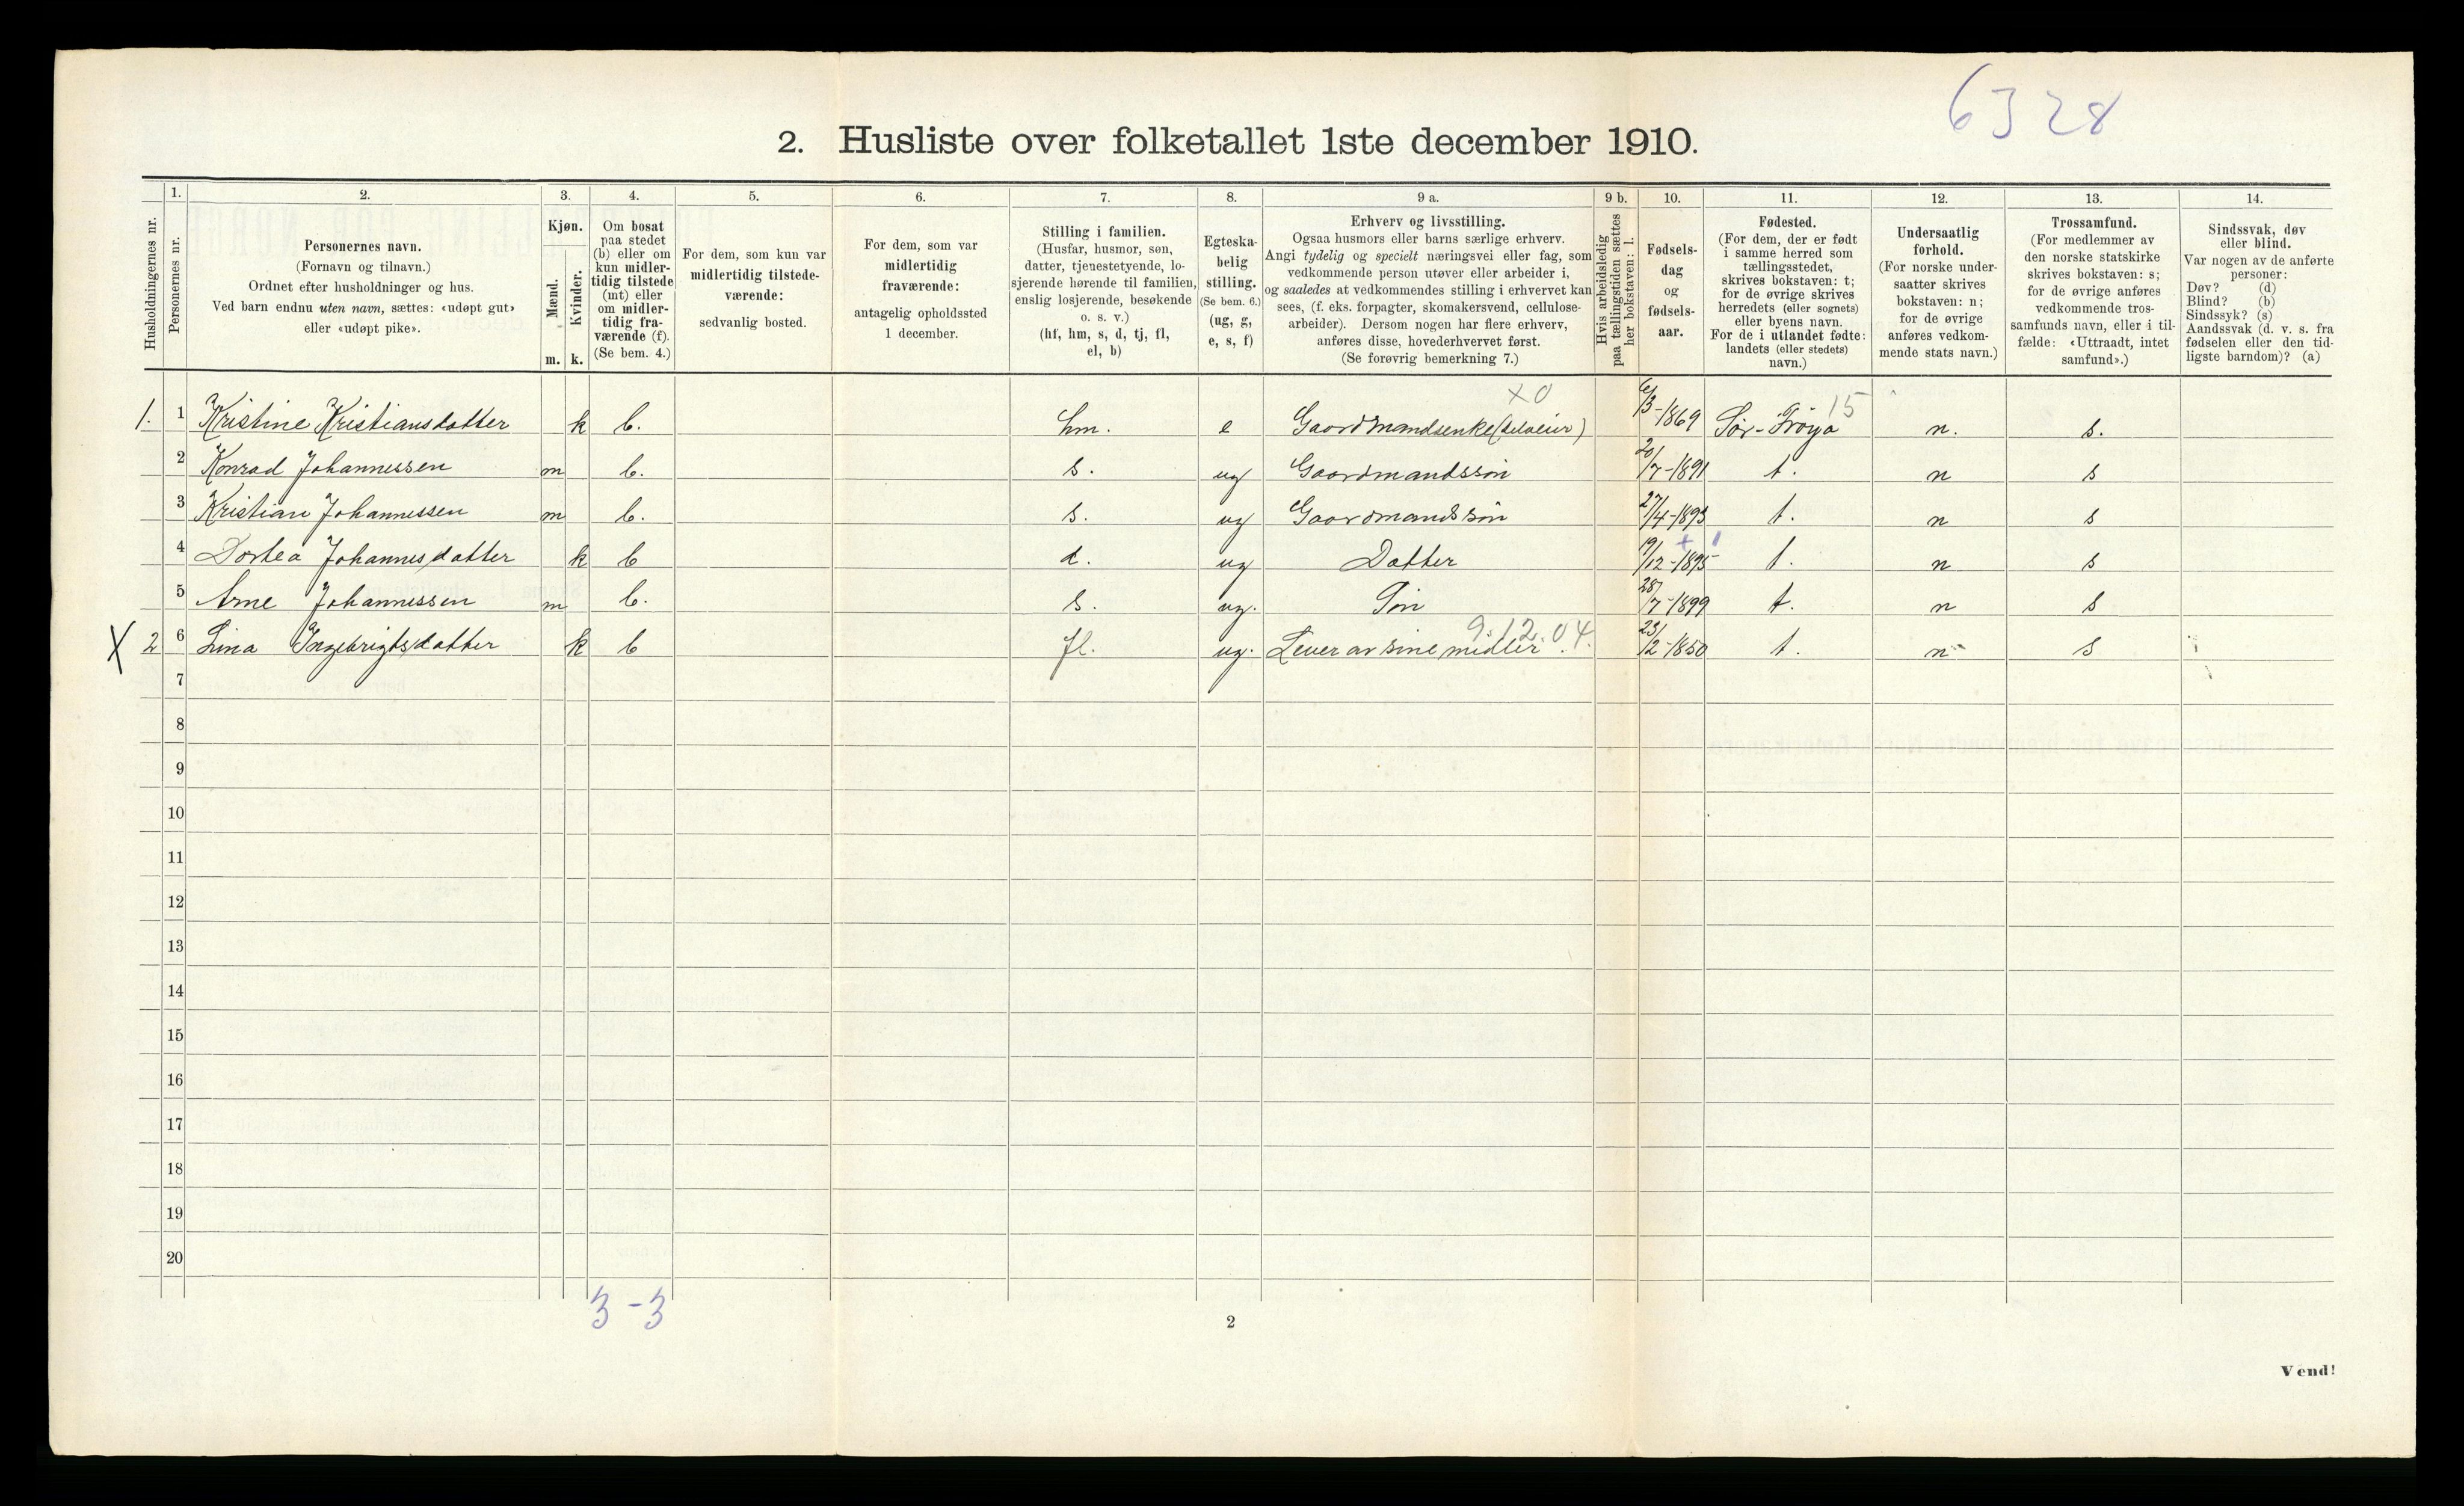 6328
2. Husliste over folketallet 1ste december 1910.
1. 2. 3. 4. 5. 6. 7. 8. 9 a. 9 b. 10. 11. 12. 13. 14.
Husholdningernes nr.
Personernes nr.
Personernes navn.
(Fornavn og tilnavn.)
Ordnet efter husholdninger og hus.
Ved barn endnu uten navn, sættes: «udøpt gut»
eller «udøpt pike».
Kjøn.
Mænd.
Kvinder.
m. k.
Om bosat
paa stedet
(b) eller om
kun midler-
tidig tilstede
(mt) eller
om midler-
tidig fra-
værende (f).
(Se bem. 4.)
For dem, som kun var
midlertidig tilstede-
værende:
sedvanlig bosted.
For dem, som var
midlertidig
fraværende:
antagelig opholdssted
1 december.
Stilling i familien.
(Husfar, husmor, søn,
datter, tjenestetyende, lo-
sjerende hørende til familien,
enslig losjerende, besøkende
o. s. v.)
(hf, hm, s, d, tj, fl,
el, b)
Egteska-
belig
stilling.
(Se bem. 6.)
(ug, g,
e, s, f)
Erhverv og livsstilling.
Ogsaa husmors eller barns særlige erhverv.
Angi tydelig og specielt næringsvei eller fag, som
vedkommende person utøver eller arbeider i,
og saaledes at vedkommendes stilling i erhvervet kan
sees, (f. eks. forpagter, skomakersvend, cellulose-
arbeider). Dersom nogen har flere erhverv,
anføres disse, hovederhvervet først.
(Se forøvrig bemerkning 7.)
Hvis arbeidsledig
paa tællingstiden sættes
her bokstaven: l.
Fødsels-
dag
og
fødsels-
aar.
Fødested.
(For dem, der er født
i samme herred som
tællingsstedet,
skrives bokstaven: t;
for de øvrige skrives
herredets (eller sognets)
eller byens navn.
For de i utlandet fødte:
landets (eller stedets)
navn.)
Undersaatlig
forhold.
(For norske under-
saatter skrives
bokstaven: n;
for de øvrige
anføres vedkom-
mende stats navn.)
Trossamfund.
(For medlemmer av
den norske statskirke
skrives bokstaven: s;
for de øvrige anføres
vedkommende tros-
samfunds navn, eller i til-
fælde: «Uttraadt, intet
samfund».)
Sindssvak, døv
eller blind.
Var nogen av de anførte
personer:
Døv? (d)
Blind? (b)
Sindssyk? (s)
Aandssvak (d. v. s. fra
fødselen eller den tid-
ligste barndom)? (a)
x0
15
1. 1 Kristine Kristiansdatter k b. hm. e Gaardmandsenke (selveier) 6/3-1869 Sør-Frøya n. s.
2 Konrad Johannessen m b. s. ug Gaardmandssøn 20/7-1891 t. n s
3 Kristian Johannessen m b. s. ug Gaardmandssøn 27/4-1893 t. n s
4 Dortea Johannesdatter k b d. ug Datter 19/12-1895 t. n s
5 Arne Johannessen m b. s. ug. Søn 28/7-1899 t. n s
9.12.04
X 2 6 Lina Ingebrigtsdatter k b fl. ug. Lever av sine midler. 23/2-1850 t. n s
7
8
9
10
11
12
13
14
15
16
17
18
19
20
3-3
2
Vend!